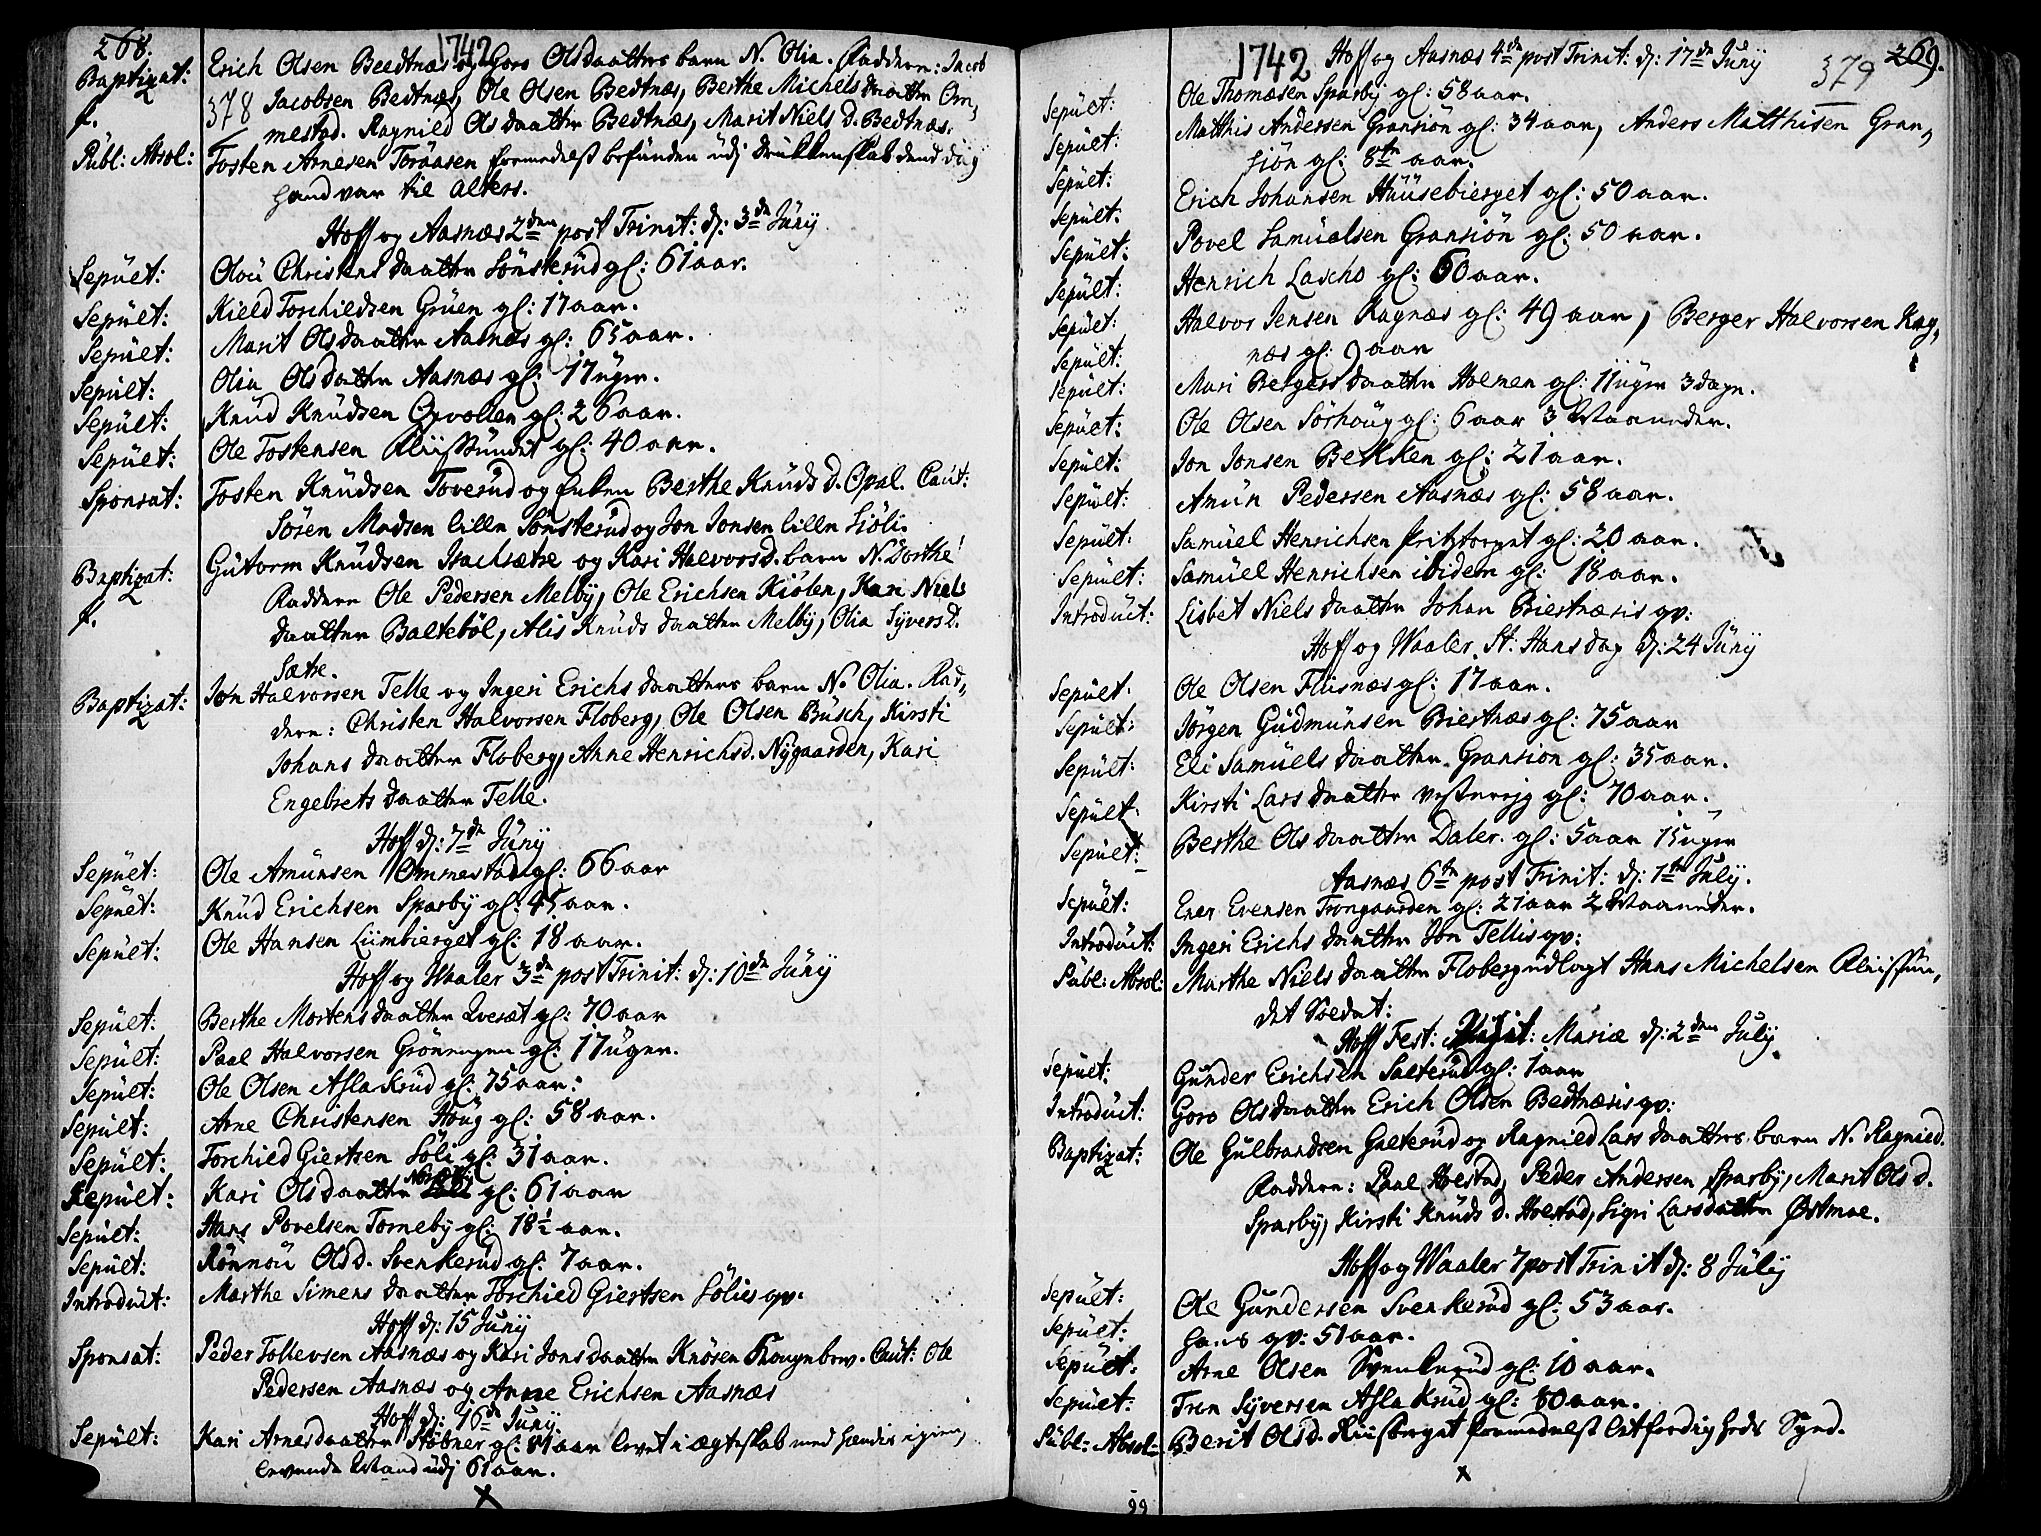 268.
1742
Baptizat: Erich Olsen Beedtnæs og Goro Olsdaatters barn N. Olia. Faddern: Jacob
f. 378 Jacobsen Bedtnæs, Ole Olsen Bedtnæs, Berthe Michelsdaatter Om,
mestad. Ragnild Olsdaatter Bedtnæs, Marit Niels D. Bedtnæs.
Publ: Absol: Tosten Arnesen Toråasen formedelst befunden udj Drukkenskab dend dag
hand var til alters.
Hoff og Aasnæs 2den post Trinit: dj: 3de Junij
Sepult: Olou Christensdaatter Sønsterud gl: 61 aar.
Sepult: Kield Torchildsen Gruen gl: 17 aar.
Sepult: Marit Olsdaatter Aasnæs gl: 65 aar.
Sepult: Olia Olsdatter Aasnæs gl: 17 uger.
Sepult: Knud Knudsen gl: 26 aar.
Sepult: Ole Tostensen gl: 40 aar.
Sponsat: Tosten Knudsen Toverud og Enken Berthe Knuds D. Opal. Caut:
Søren Madsen lille Sønsterud og Jon Jonsen lille Siøli.
Baptizat: Gutorm Knudsen og Kari Halvorsd. barn N. Dorthe
f. Faddern Ole Pedersen Melby, Ole Erichsen Kiølen, Kari Niels
daatter Balteböl, Alis Knudsdaatter Melby, Olia Syvers D.
Sætre.
Baptizat: Jon Halvorsen Telle og Ingeri Erichsdaatters barn N. Olia. Fad,
dern: Christen Halvorsen Floberg, Ole Olsen Busch, Kirsti
Johansdaatter Floberg, Anne Henrichsd. Nygaarden, Kari
Engebretsdaatter Telle.
Hoff dj: 7de Junij
Sepult: Ole Amunsen Ommestad gl: 66 aar
Sepult: Knud Erichsen Sparby gl: 45 aar.
Sepult: Ole Hansen Liimbierget gl: 18 aar.
Hoff og Waaler 3de post Trinit: dj: 10de Junij
Sepult: Berthe Mortensdaatter Qveset gl: 70 aar
Sepult: Paal Halvorsen Grønningen gl: 17 uger.
Sepult: Ole Olsen Aslakrud gl: 75 aar.
Sepult: Arne Christensen Houg gl: 58 aar.
Sepult: Torchild Giertsen Søli gl: 31 aar.
Sepult: Kari Olsdaatter gl: 61 aar
Sepult: Hans Povelsen Torneby gl: 18½ aar.
Sepult: Rønnou Olsd. Svenkerud gl: 7 aar.
Introduct: Marthe Simensdaatter Torchild Giertsen Sølies qv:
Hoff dj: 15 Junij
Sponsat: Peder Tollevsen Aasnæs og Kari Jonsdaatter Knøsen Caut: Ole
Pedersen Aasnæs og Arne Erichsen Aasnæs
Hoff dj: 16de Junij
Sepult: Kari Arnesdaatter Støbner gl: 81 aar levet i ægteskab med hendis igien,
levende Mand udj 61 aar.
x
1742 Hoff og Aasnæs 4de post Trinit: dj: 17de Junij
379
269.
Sepult: Ole Thomæsen Sparby gl: 58 aar.
Sepult: Matthis Andersen Gransiön gl: 34 aar, Anders Matthisen Gran,
Sepult: siön gl: 8te aar.
Sepult: Erich Johansen Huusebierget gl: 50 aar.
Sepult: Povel Samuelsen Gransiön gl: 50 aar.
Sepult: Henrich Lascho gl: 60 aar.
Sepult: Halvor Jensen Kagnæs gl: 49 aar, Berger Halvorsen Kag,
Sepult: næs gl: 9 aar
Sepult: Mari Bergersdaatter Holmen gl: 11 uger 3 dage.
Sepult: Ole Olsen Sörhoug gl: 6 aar 3 Maaneder.
Sepult: Jon Jonsen Bekken gl: 21 aar.
Sepult: Amun Pedersen Aasnæs gl: 58 aar.
Sepult: Samuel Henrichsen Pritztorpet gl: 20 aar.
Sepult: Samuel Henrichsen ibidem gl: 18 aar.
Introduct: Lisbet Nielsdaatter Johan Biertnæsis qv:
Hoff og Waaler St: Hansdag dj: 24 Junij
Sepult: Ole Olsen Flisnæs gl: 17 aar.
Sepult: Jörgen Gudmunsen Biertnæs gl: 75 aar
Sepult: Eli Samuelsdaatter Gransion gl: 35 aar.
Sepult: Kirsti Larsdaatter gl: 70 aar.
Sepult: Berthe Olsdaatter Daler gl: 5 aar 15 uger
Aasnæs 6te post Trinit: dj: 1te Julij.
Sepult: Ever Evensen Trongaarden gl: 21 aar 2 Maaneder.
Introduct: Ingeri Erichsdaatter Jon Tellis qv:
Publ: Absol: Marthe Nielsdaatter Floberg udlagt Hans Michelsen
det Soldat:
Hoff Fest: Visit: Mariæ dj: 2den Julij
Sepult: Gunder Erichsen Sæterud gl: 1 aar
Introduct: Goro Olsdaatter Erich Olsen Bedtnæsis qv:
Baptizat: Ole Gulbrandsen Galterud og Ragnild Larsdaatters barn N. Ragnild.
Faddern: Paal Holstad, Peder Andersen Sparby, Marit Ols D.
Sparby, Kirsti Knuds D. Holstad, Sigri Larsdatter Østmoe.
Hoff og Waaler 7 post Trinit dj: 8 Julij
Sepult: Ole Gundersen Svenkerud gl: 53 aar.
Sepult: Hans qv: 51 aar.
Sepult: Arne Olsen Svenkerud gl: 10 aar.
Sepult: Tren Syversen Aslakrud gl: 80 aar.
Publ: Absol: Berit Olsd. Riisberget formedelst letfærdigheds Synd.
x
99